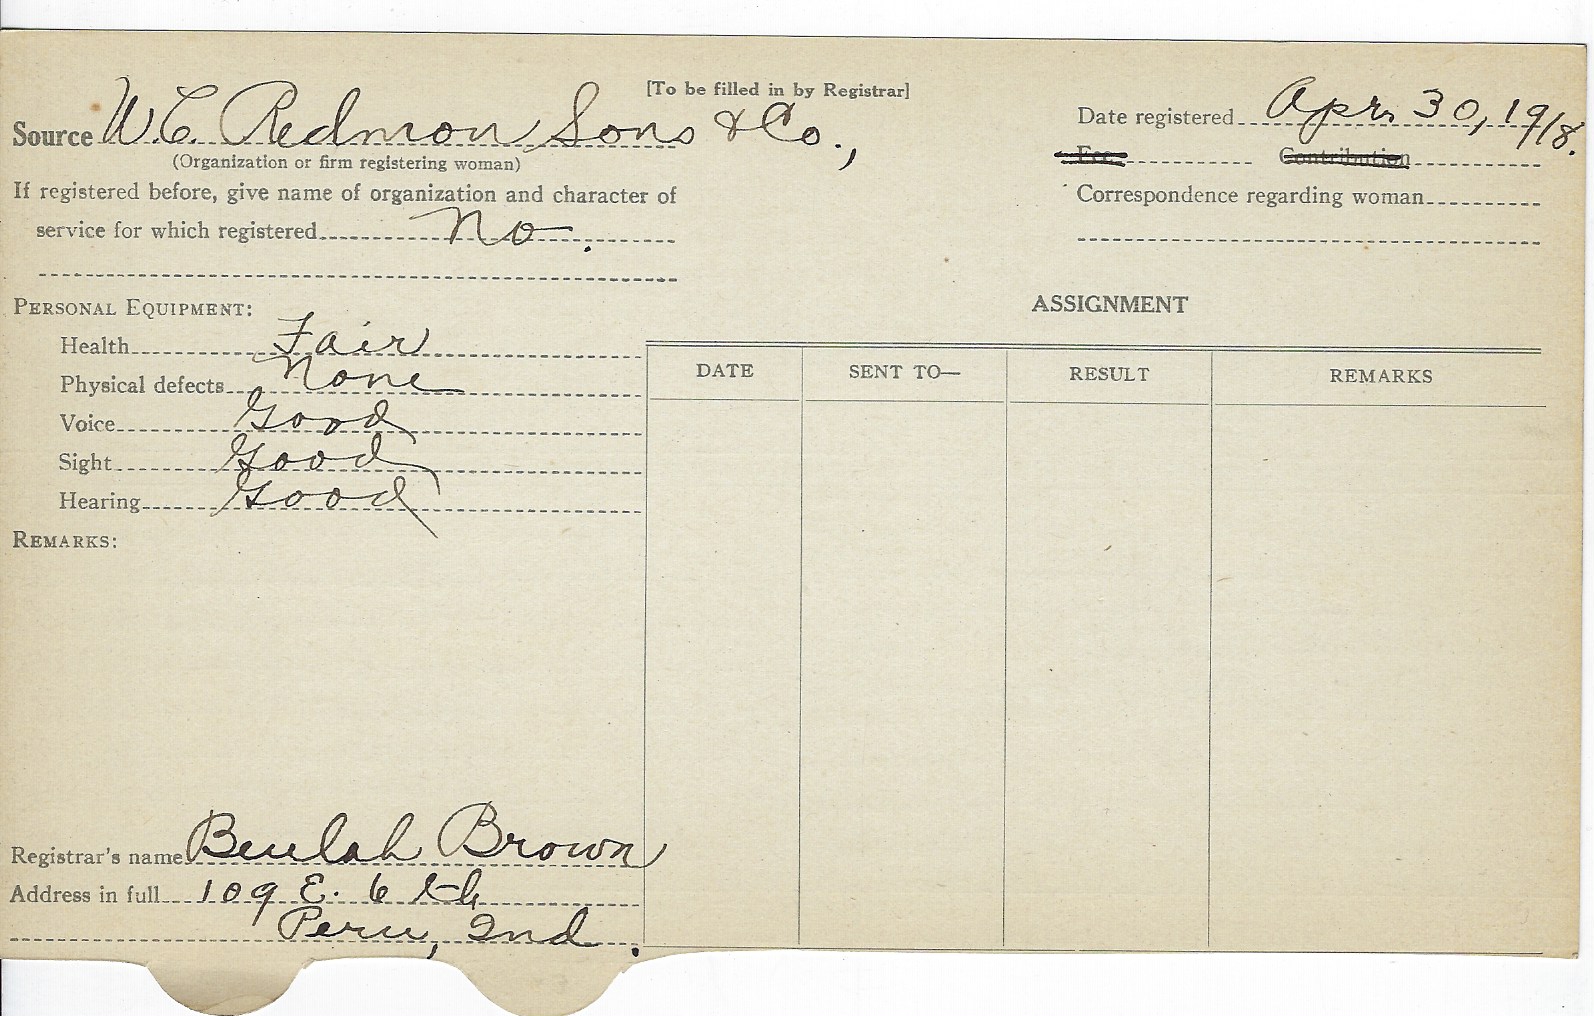 [To be filled in by Registrar]
Source W.C. Redmon Sons & Co.,
(Organization or firm registering woman)
If registered before, give name of organization and character of
service for which registered No.
Date registered Apr. 30, 1918.
Fee Contribution
Correspondence regarding woman
PERSONAL EQUIPMENT:
Health Fair
Physical defects None
Voice Good
Sight Good
Hearing Good
REMARKS:
ASSIGNMENT
DATE SENT TO— RESULT REMARKS
Registrar's name Beulah Brown
Address in full 109 E. 6th
Peru, Ind.